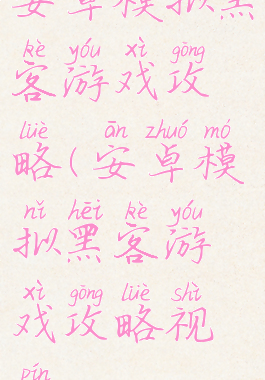 安卓模拟黑
kè yóu xì gōng
客游戏攻
lüè ān zhuó mó
略(安卓模
nǐ hēi kè yóu
拟黑客游
xì gōng lüè shì
戏攻略视
pín